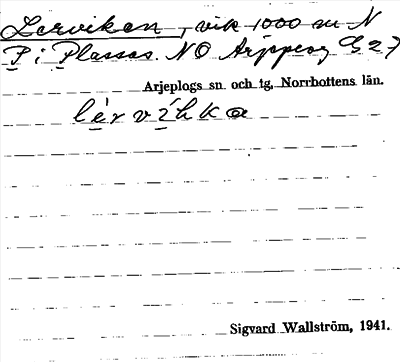 Lerviken, vik 1000 m N
P i Plassas. NO Arjeplog G 27
Arjeplogs sn. och tg, Norrbottens län.
lèrvíhka
Sigvard Wallström, 1941.